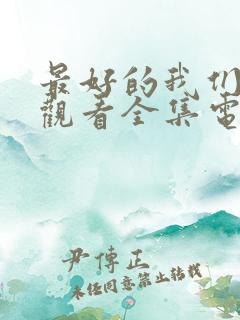 最好的我们
觀看全集電
尹傳正
未经同意禁止转载